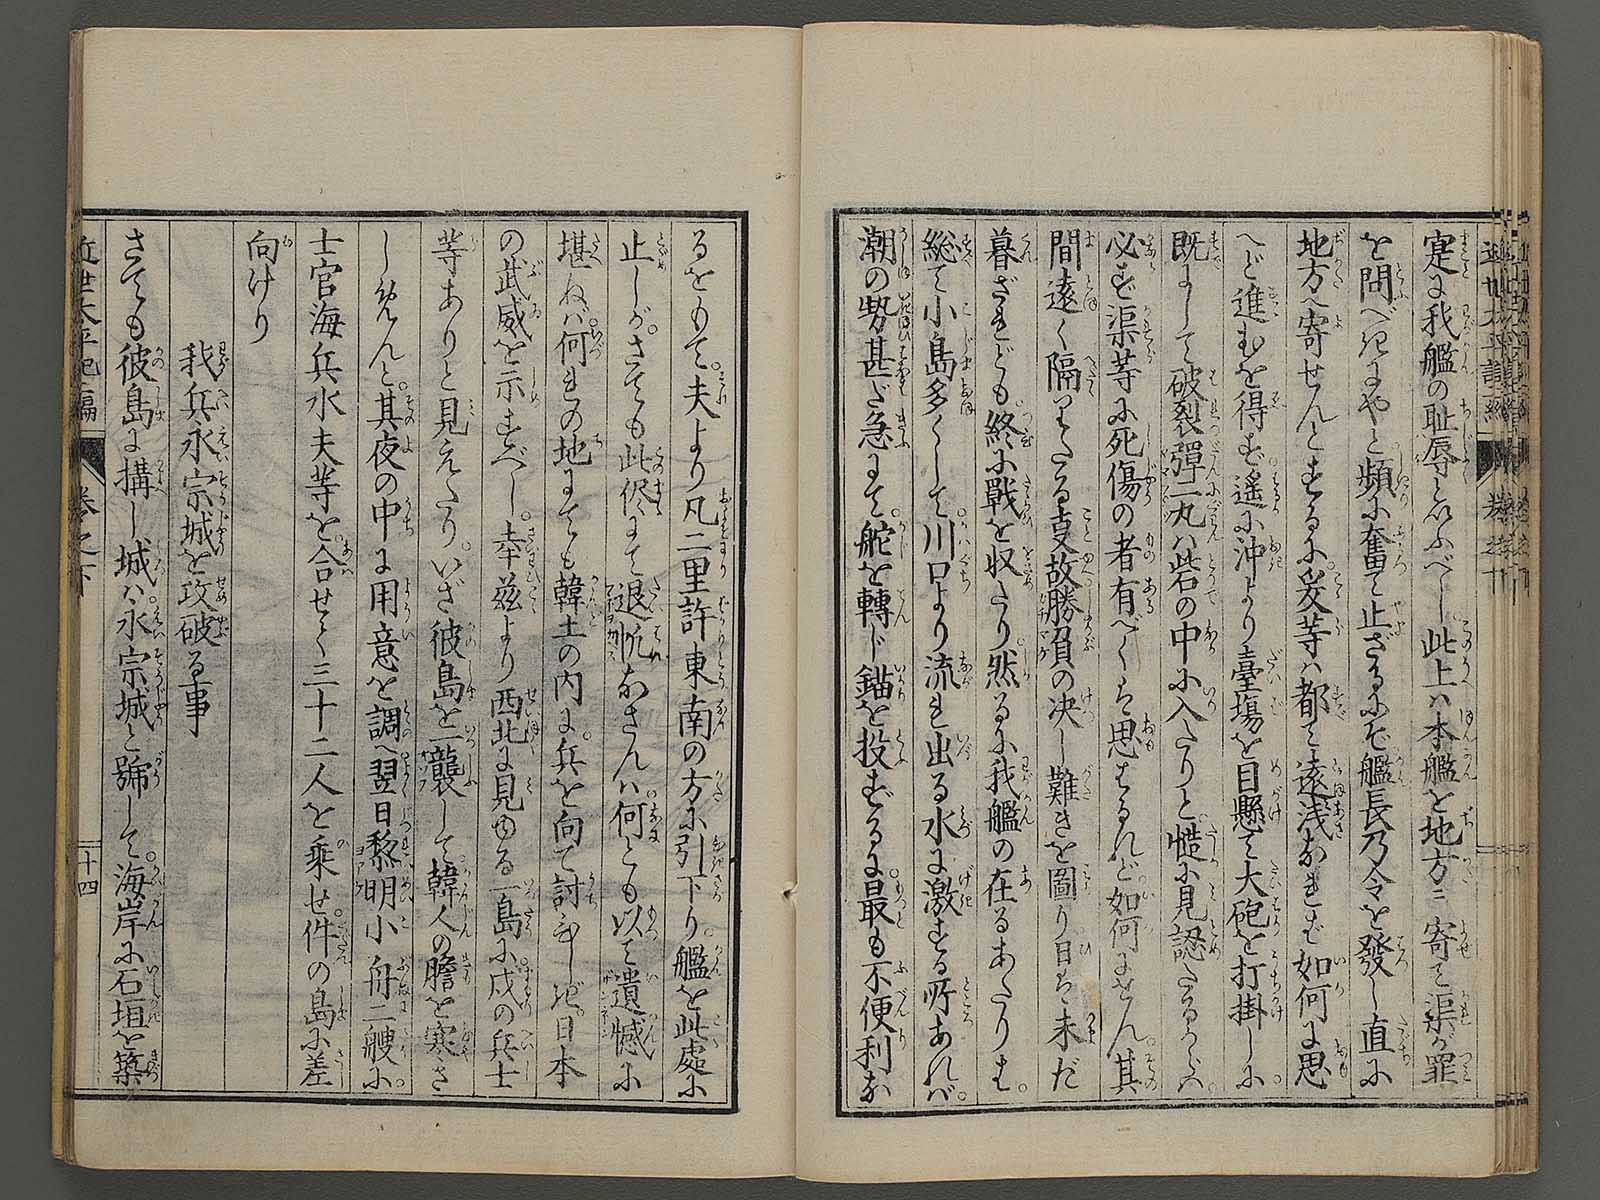 寔に我艦の耻辱と云ふべし此上ハ本艦を地方ニ寄せて渠が罪
を問べきにやと頻に奮て止ざるにぞ艦長乃令を發し直に
地方へ寄せんとするに。爰等ハ都て遠浅なれバ如何に思
へど進むを得ず遥に沖より臺塲を目懸て大砲を打掛しに。
既にして破裂彈二丸ハ砦の中に入たりと慥に見認たるからハ
必ず渠等に死傷の者有べくは思はるれど如何にせん。其
間遠く隔りたる事故勝負の决し難きを圖り日は未だ
暮ざれども終に戰を収たり。然るに我艦の在るあたりは。
総て小島多くして。川口より流れ出る水に激する所あれバ。
潮の勢甚だ急にて。舵を轉じ錨を投ずるに最も不便利な
るをもて。夫より凡二里許東南の方に引下り。艦を此處に
止しが。さても此侭にて退帆なさんハ何とも以て遺憾に
堪ねバ何れの地にても韓土の内に。兵を向て討むしめ日本
の武威を示すべし。幸茲より西北に見ゆる一島に。戍の兵士
等ありと見えたり。いざ彼島を一襲して韓人の膽を寒さ
しめんと。其夜の中に用意を調へ翌日黎明小舟二艘に。
士官海兵水夫等を合せて三十二人を乘せ。件の島に差
向けり
我兵永宗城を攻破る事
さても彼島に搆し城ハ。永宗城と號して。海岸に石垣を築
近世太平記編
巻之下
十四